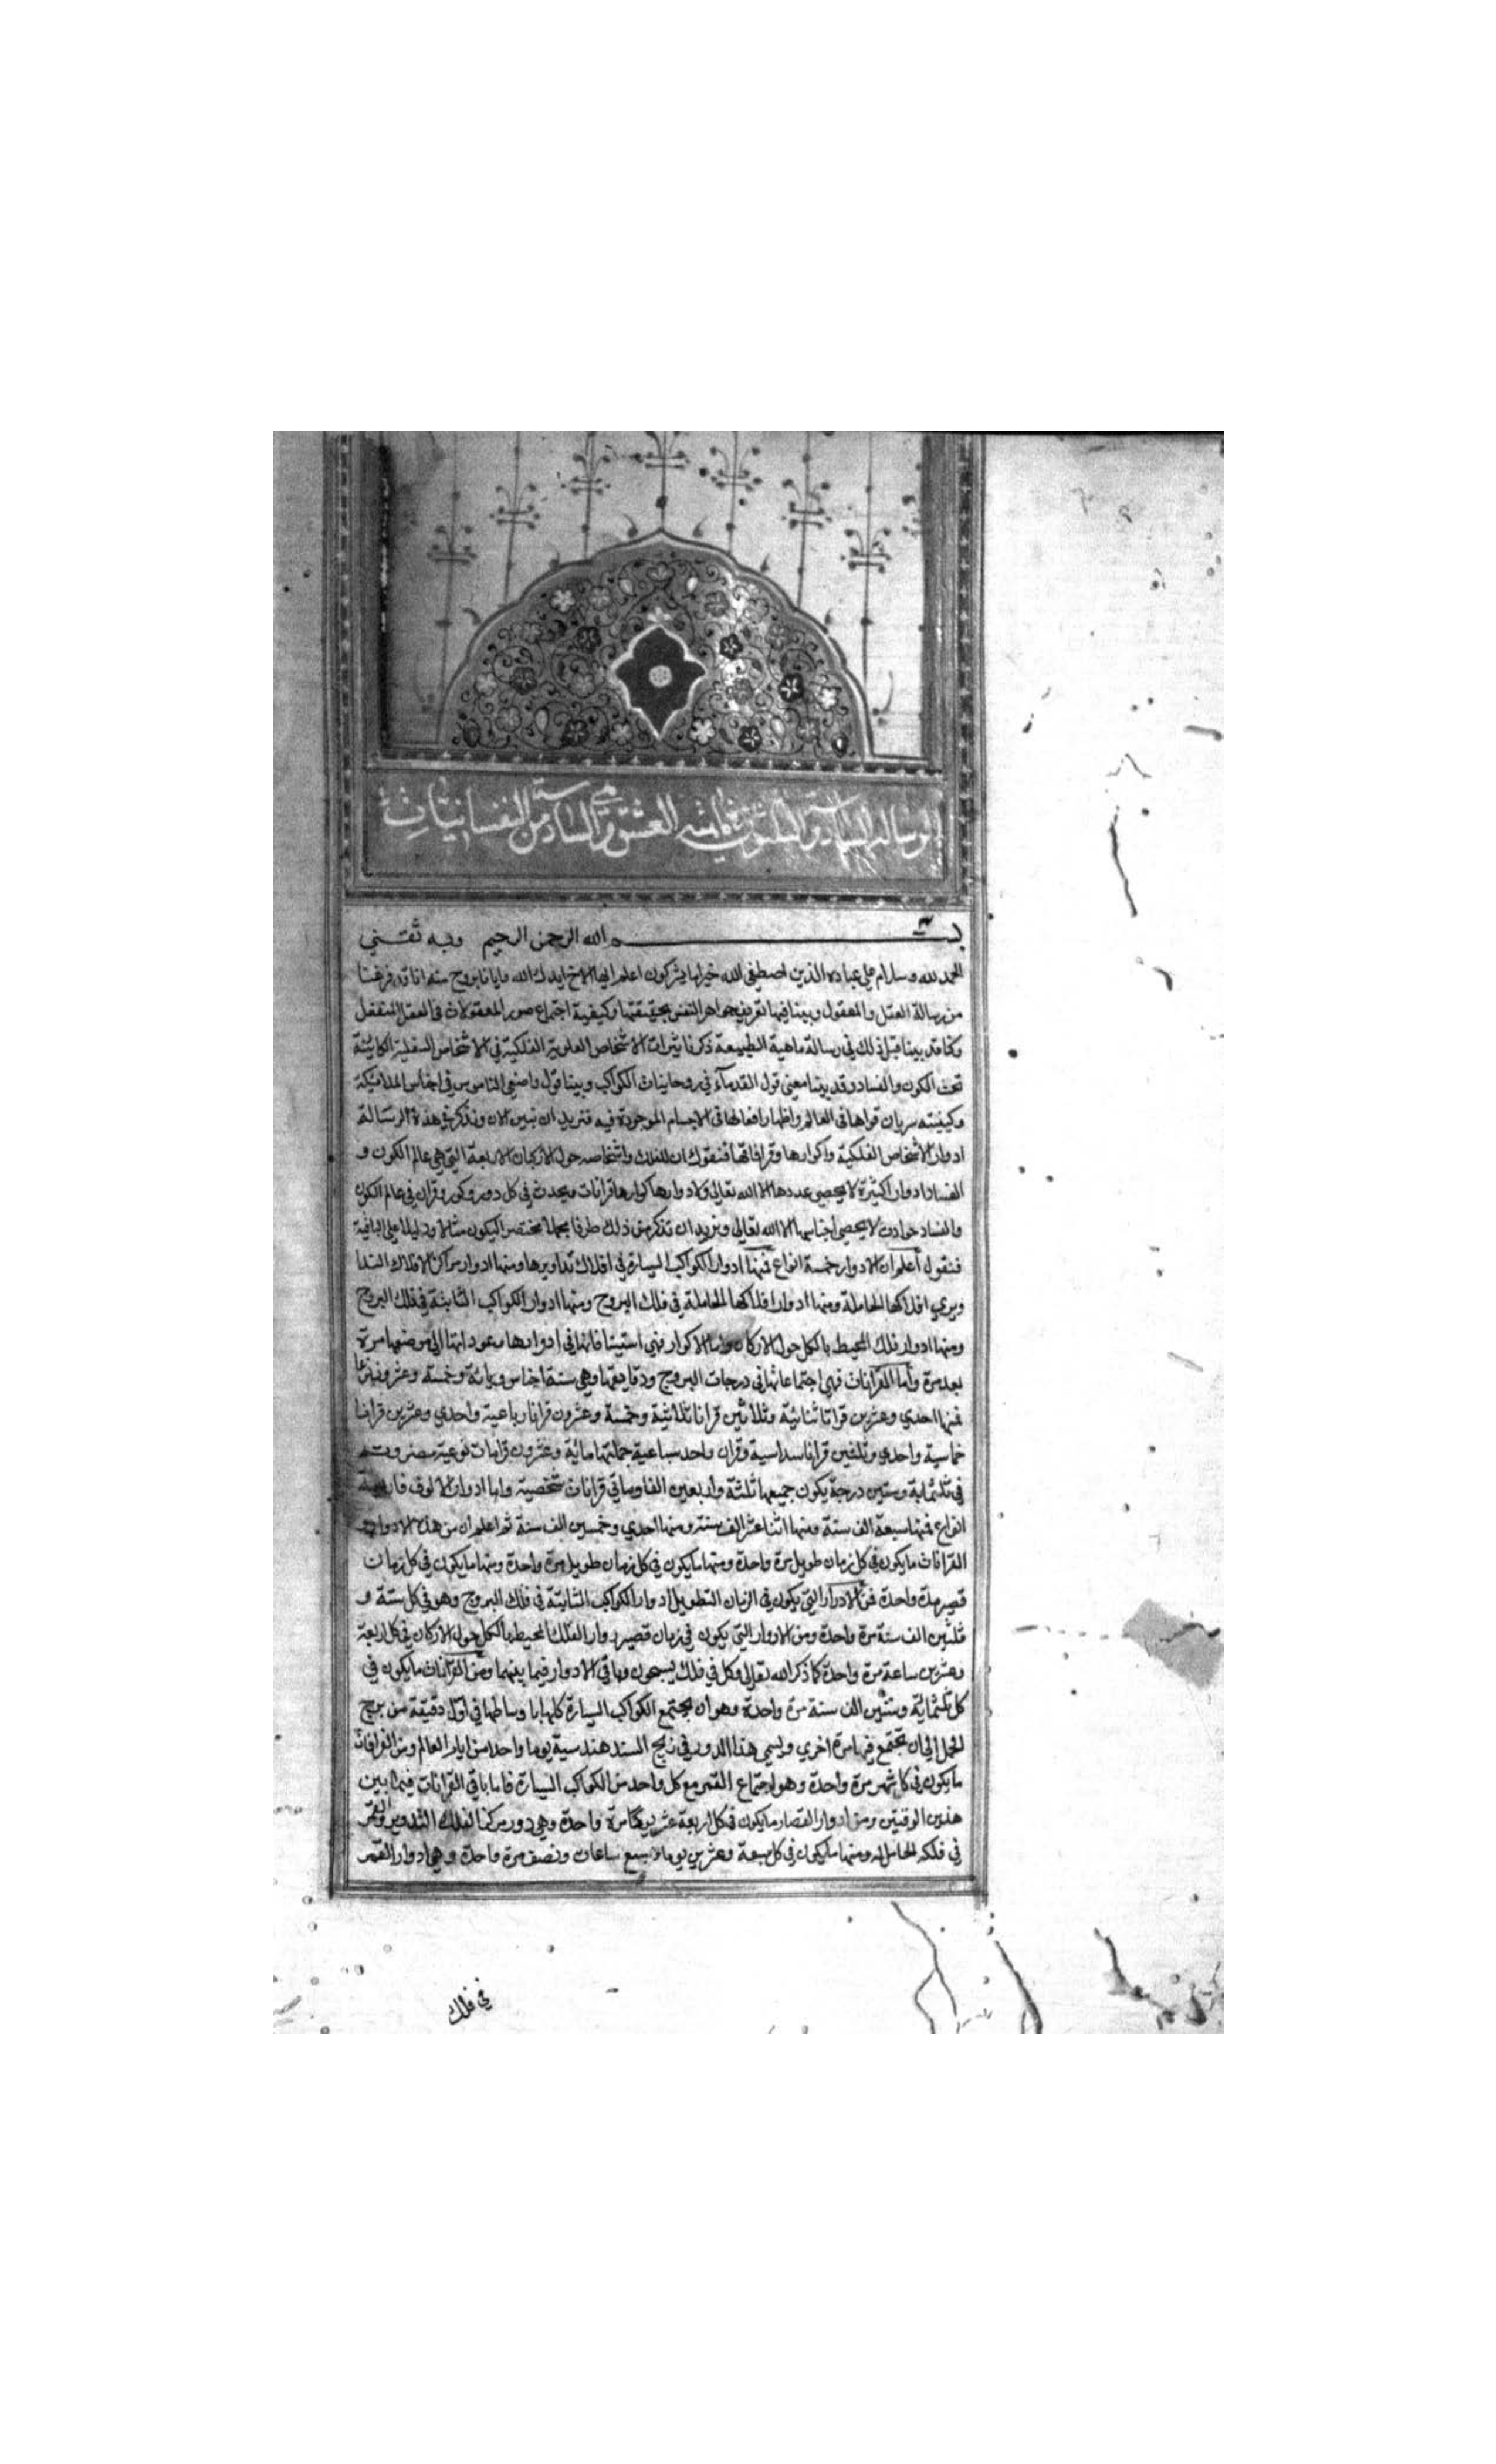 الرسالة السادسة والثلثون في ماهية العشق والسادسة من النفسانيات
بسم الله الرحمن الرحيم وبه ثقتي
الحمد لله وسلام على عباده الذين اصطفى الله خير اما يشركون اعلم ايها الاخ ايدك الله وايانا بروح منه انا قد فرغنا
من رسالة العقل والمعقول وبينا فيها تعريف جواهر النفس بحقيقتها وكيفية اجتماع صور المعقولات في العقل المنفعل
وكنا قد بينا قبل ذلك في رسالة ماهية الطبيعة ذكر تاثيرات الاشخاص العلوية الفلكية في الاشخاص السفلية الكائنة
تحت الكون والفساد وقد بينا معنى قول القدماء في روحانيات الكواكب وبينا قول واضعي الناموس في اجناس الملائكة
وكيفيته سريان قواها في العالم واظهار افعالها في الاجسام الموجودة فيه فنريد ان نبين الان ونذكر في هذه الرسالة
ادوار الاشخاص الفلكية واكوارها وقراناتها فنقول ان للفلك واشخاصه حول الاركان الاربعة التي هي عالم الكون و
الفساد ادوار اكثيرة لا يحصي عددها الا الله تعالى ولادوارها كوارها قرانات ويحدث في كل دور وكور وقران في عالم الكون
والفساد حوادث لا يحصي اجناسها الا الله تعالى ونريد ان نذكر من ذلك طرفا مجملا مختصر اليكون مثالا ودليلا على الباقية
فنقول أعلم ان الادوار خمسة انواع فمنها ادوار الكواكب السيارة في افلاك تداويرها ومنها ادوار مراكز الافلاك التدا
ويري افلاكها الحاملة ومنها ادوار افلاكها الحاملة في فلك البروج ومنها ادوار الكواكب الثابتة في فلك البروج
ومنها ادوار فلك المحيط بالكل حول الاركان واما الاكوار فهي استينافاتها في ادوارها وعوداتها الى موضعها مرة
بعد مرة وأما القرانات فهي اجتماعاتها في درجات البروج ودقايقها وهي ستة اجناس ومائة وخمسة وعشرون نوعا
فمنها احدي وعشرين قرانا ثنائية وثلاثين قرانا ثلاثية وخمسة وعشرون قرانا رباعية واحدي وعشرين قرانا
خماسية واحدي وثلثين قرانا سداسية وقران واحد سباعية جملتها مائة وعشرون قرانات نوعية مضروبة
في ثلثماية وستين درجة يكون جميعها ثلثة واربعين الفا ومائتي قرانات شخصية واما ادوار الالوف فاربعة
انواع فمنها سبعة الف سنة ومنها اثنا عشر الف سنة ومنها احدي وخمسين الف سنة ثم اعلم ان من هذه الادوار و
القرانات ما يكون في كل زمان طويل مرة واحدة ومنها ما يكون في كل زمان طويل مرة واحدة ومنها ما يكون في كل زمان
قصير مرة واحدة فمن الادوار التي يكون في الزمان الطويل ادوار الكواكب الثابتة في فلك البروج وهو في كل ستة و
ثلثين الف سنة مرة واحدة ومن الادوار التي يكون في زمان قصير دوار الفلك المحيط بالكل حول الاركان في كل اربعة
وعشرين ساعة مرة واحدة كما ذكر الله تعالى وكل في فلك يسبحون وباقي الادوار فيما بينهما ومن القرانات ما يكون في
كل ثلثمائة وستين الف سنة مرة واحدة وهو ان يجتمع الكواكب السيارة كلها باوساطها في اول دقيقة من برج
الحمل الى ان تجتمع فيها مرة اخري ويسمي هذا الدور في زيج السند هندسية يوما واحد من ايام العالم ومن القرانات
ما يكون في كل شهر مرة واحدة وهو اجتماع القمر مع كل واحد من الكواكب السيارة فاما باقي القرانات فيما بين
هذين الوقتين ومن ادوار القصار ما يكون في كل اربعة عشر يوما مرة واحدة وهي دور مركز الفلك التدوير والقمر
في فلكه الحامل له ومنها ما يكون في كل سبعة وعشرين يوما وسبع ساعات ونصف مرة واحدة وهي ادوار القمر
في فلك